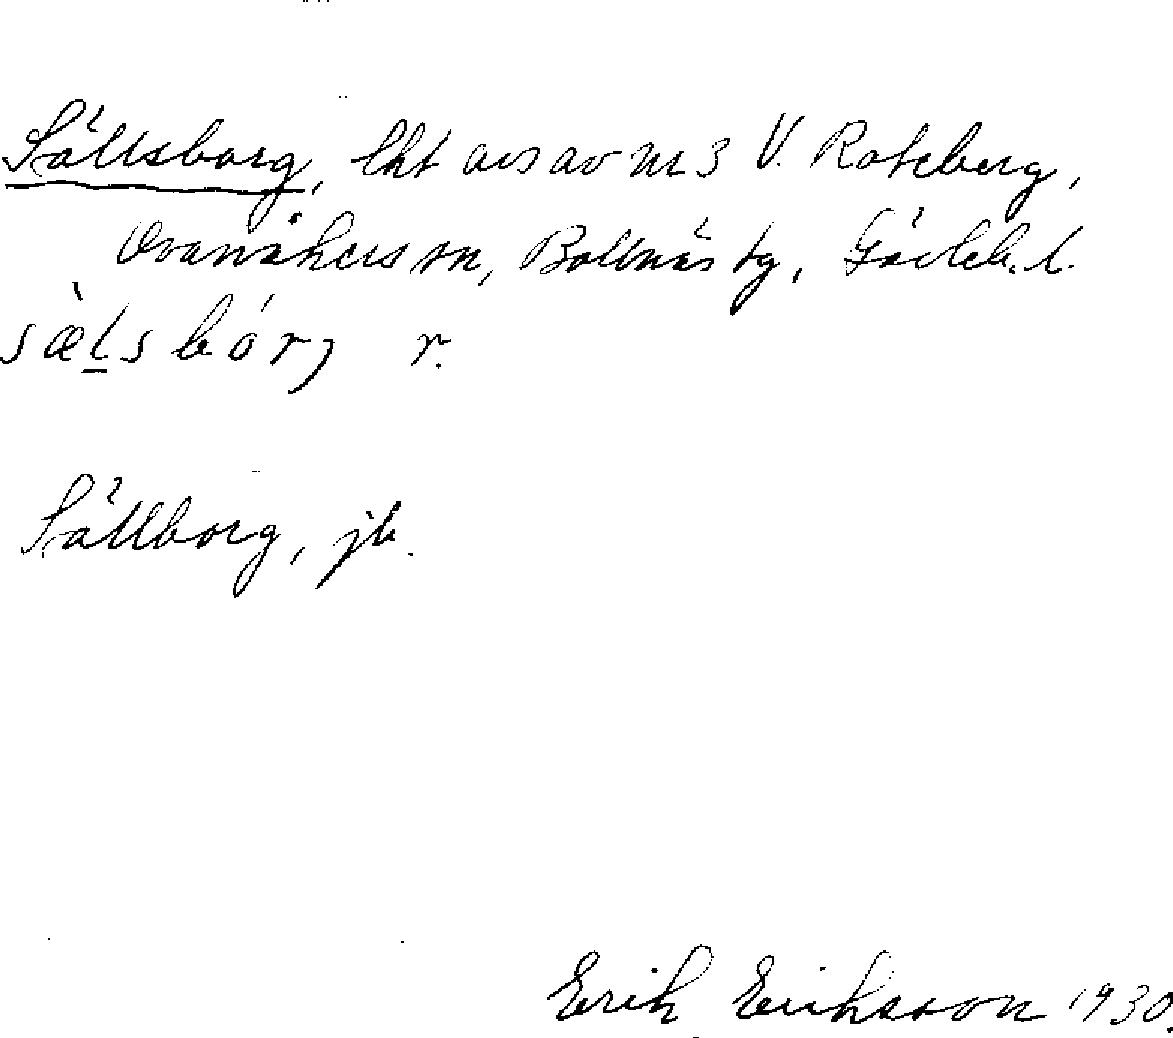 Sällsborg, lht avs av nr 3 V. Roteberg,
Ovanåkers sn, Bollnäs tg, Gävleb. l.
sæ̀l̠sbórj r.
Sällborg, jb.
Erik Eriksson 1930.